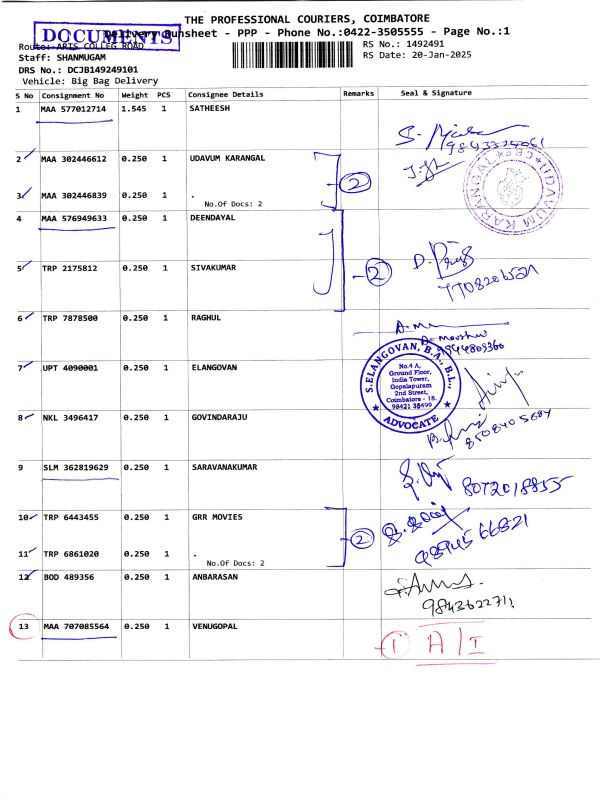 THE PROFESSIONAL COURIERS, COIMBATORE
DOCUMENTS
Delivery Runsheet - PPP - Phone No.:0422-3505555 - Page No.:1
Route: ARTS COLLEG ROAD
RS No.: 1492491
Staff: SHANMUGAM
RS Date: 20-Jan-2025
DRS No.: DCJB149249101
Vehicle: Big Bag Delivery
S No Consignment No Weight PCS Consignee Details Remarks Seal & Signature
1 MAA 577012714 1.545 1 SATHEESH
2 MAA 302446612 0.250 1 UDAVUM KARANGAL
2
UDAVUM KARANGAL
3 MAA 302446839 0.250 1 .
No.Of Docs: 2
4 MAA 576949633 0.250 1 DEENDAYAL
5 TRP 2175812 0.250 1 SIVAKUMAR
2
6 TRP 7878500 0.250 1 RAGHUL
7 UPT 4090001 0.250 1 ELANGOVAN
S.ELANGOVAN, B.A., B.L.,
No.4 A,
Ground Floor,
India Tower,
Gopalapuram
2nd Street,
Coimbatore - 18.
98421 35499
ADVOCATE
8 NKL 3496417 0.250 1 GOVINDARAJU
8508405684
9 SLM 362819629 0.250 1 SARAVANAKUMAR
8072018855
10 TRP 6443455 0.250 1 GRR MOVIES
2
11 TRP 6861020 0.250 1 .
No.Of Docs: 2
12 BOD 489356 0.250 1 ANBARASAN
13 MAA 707085564 0.250 1 VENUGOPAL
1 A/I